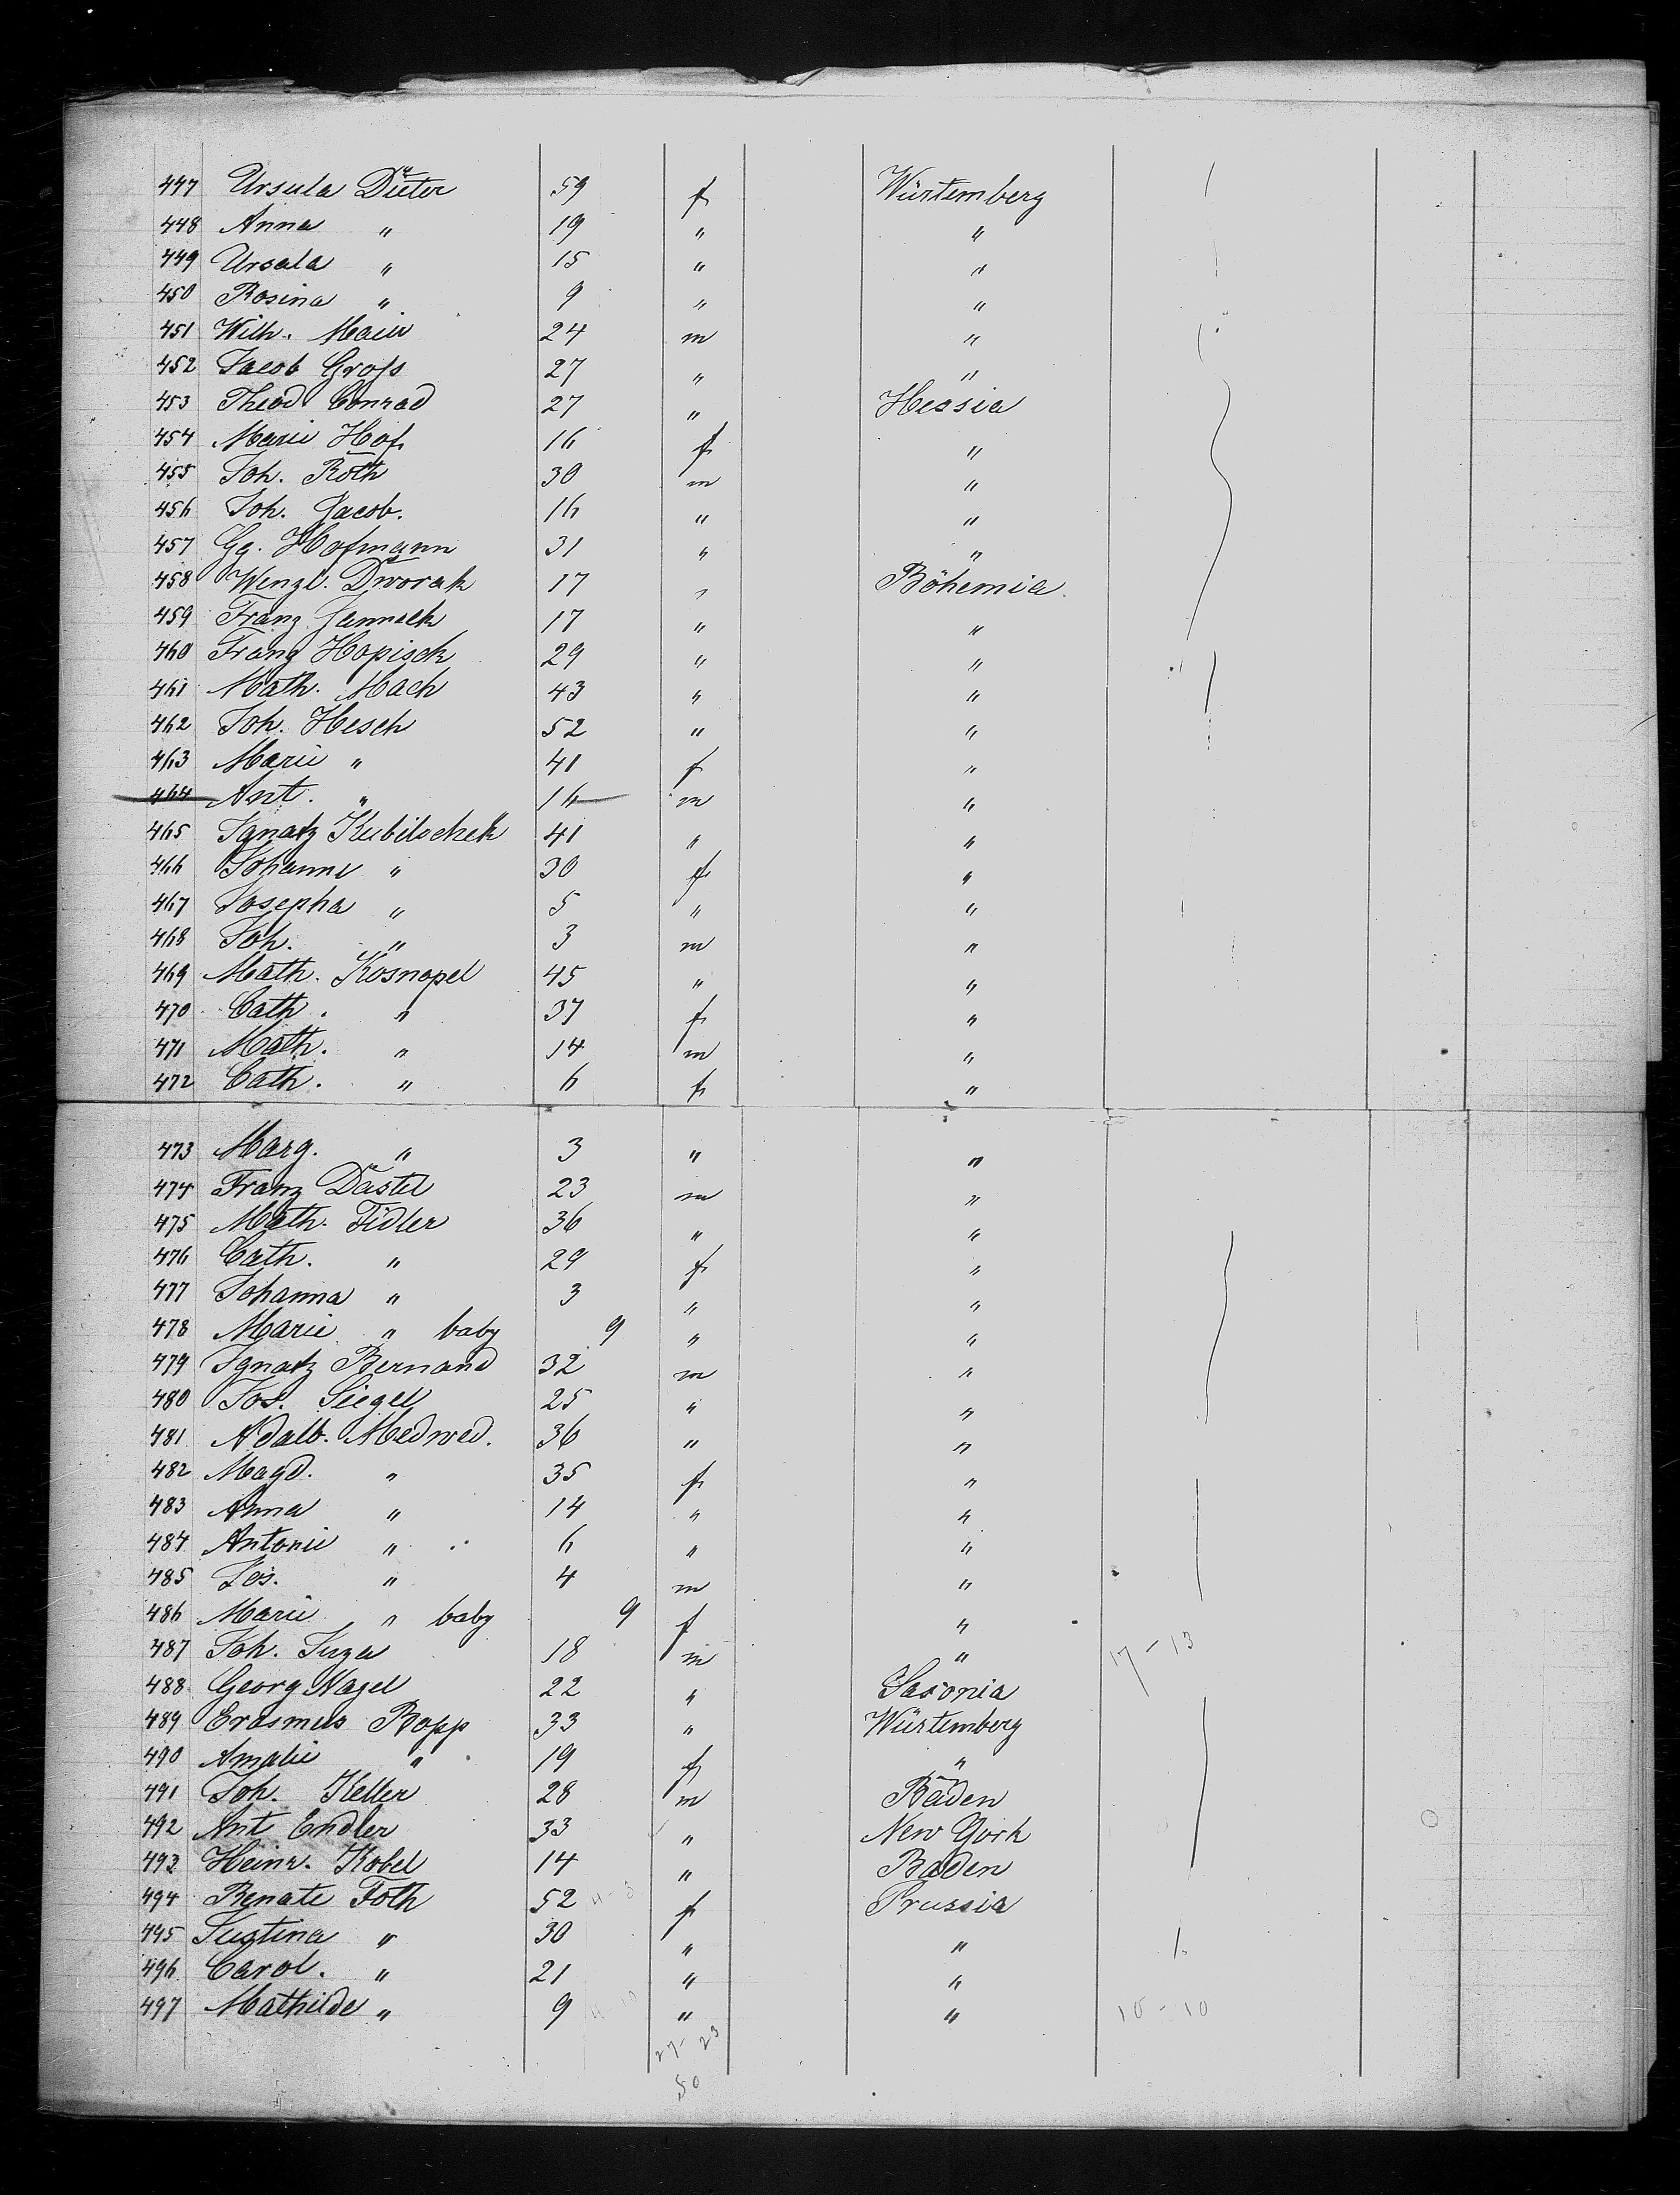 447 Ursula Dieter 59 f Würtemberg
448 Anna " 19 " "
449 Ursula " 15 " "
450 Rosina " 9 " "
451 Wilh. Maier 24 m "
452 Jacob Groſs 27 " "
453 Theod Conrad 27 " Hessia
454 Marie Hof 16 f "
455 Joh. Roth 30 m "
456 Joh. Jacob. 16 " "
457 Gg. Hofmann 31 " "
458 Wenzl. Dworak 17 " Böhemia.
459 Franz 17 " "
460 Franz Hopisek 29 " "
461 Math. Mach 43 " "
462 Joh. Hesch 52 " "
463 Marie " 41 f "
464 Ant. " 16 m "
465 Ignatz Kubitschek 41 " "
466 Johanne " 30 f "
467 Josepha " 5 " "
468 Joh. " 3 m "
469 Math. Kosnopel 45 " "
470 Cath. " 37 f "
471 Math. " 14 m "
472 Cath. " 6 f "
473 Marg. " 3 " "
474 Franz Dastel 23 m "
475 Math. Fidler 36 " "
476 Cath. " 29 f "
477 Johanna " 3 " "
478 Marie " baby 9 " "
479 Ignatz Bernand 32 m "
480 Jos. Siegel 25 " "
481 Adalb. Medwed. 36 " "
482 Magd. " 35 f "
483 Anna " 14 " "
484 Antonie " 6 " "
485 Jos. " 4 m "
486 Marie " baby 9 f "
487 Joh. 18 m " 17-13
488 Georg Nagel 22 " Saxonia
489 Erasmus Bopp 33 " Würtemberg
490 Amalie " 19 f "
491 Joh. Keller 28 m Baden
492 Ant Endler 33 " New York
493 Heinr. Kobel 14 " Baden
494 Renate Foth 52 4-3 f Prussia
495 Justina " 30 " "
496 Carol. " 21 " "
497 Mathilde " 9 " " 10-10
27-23
50